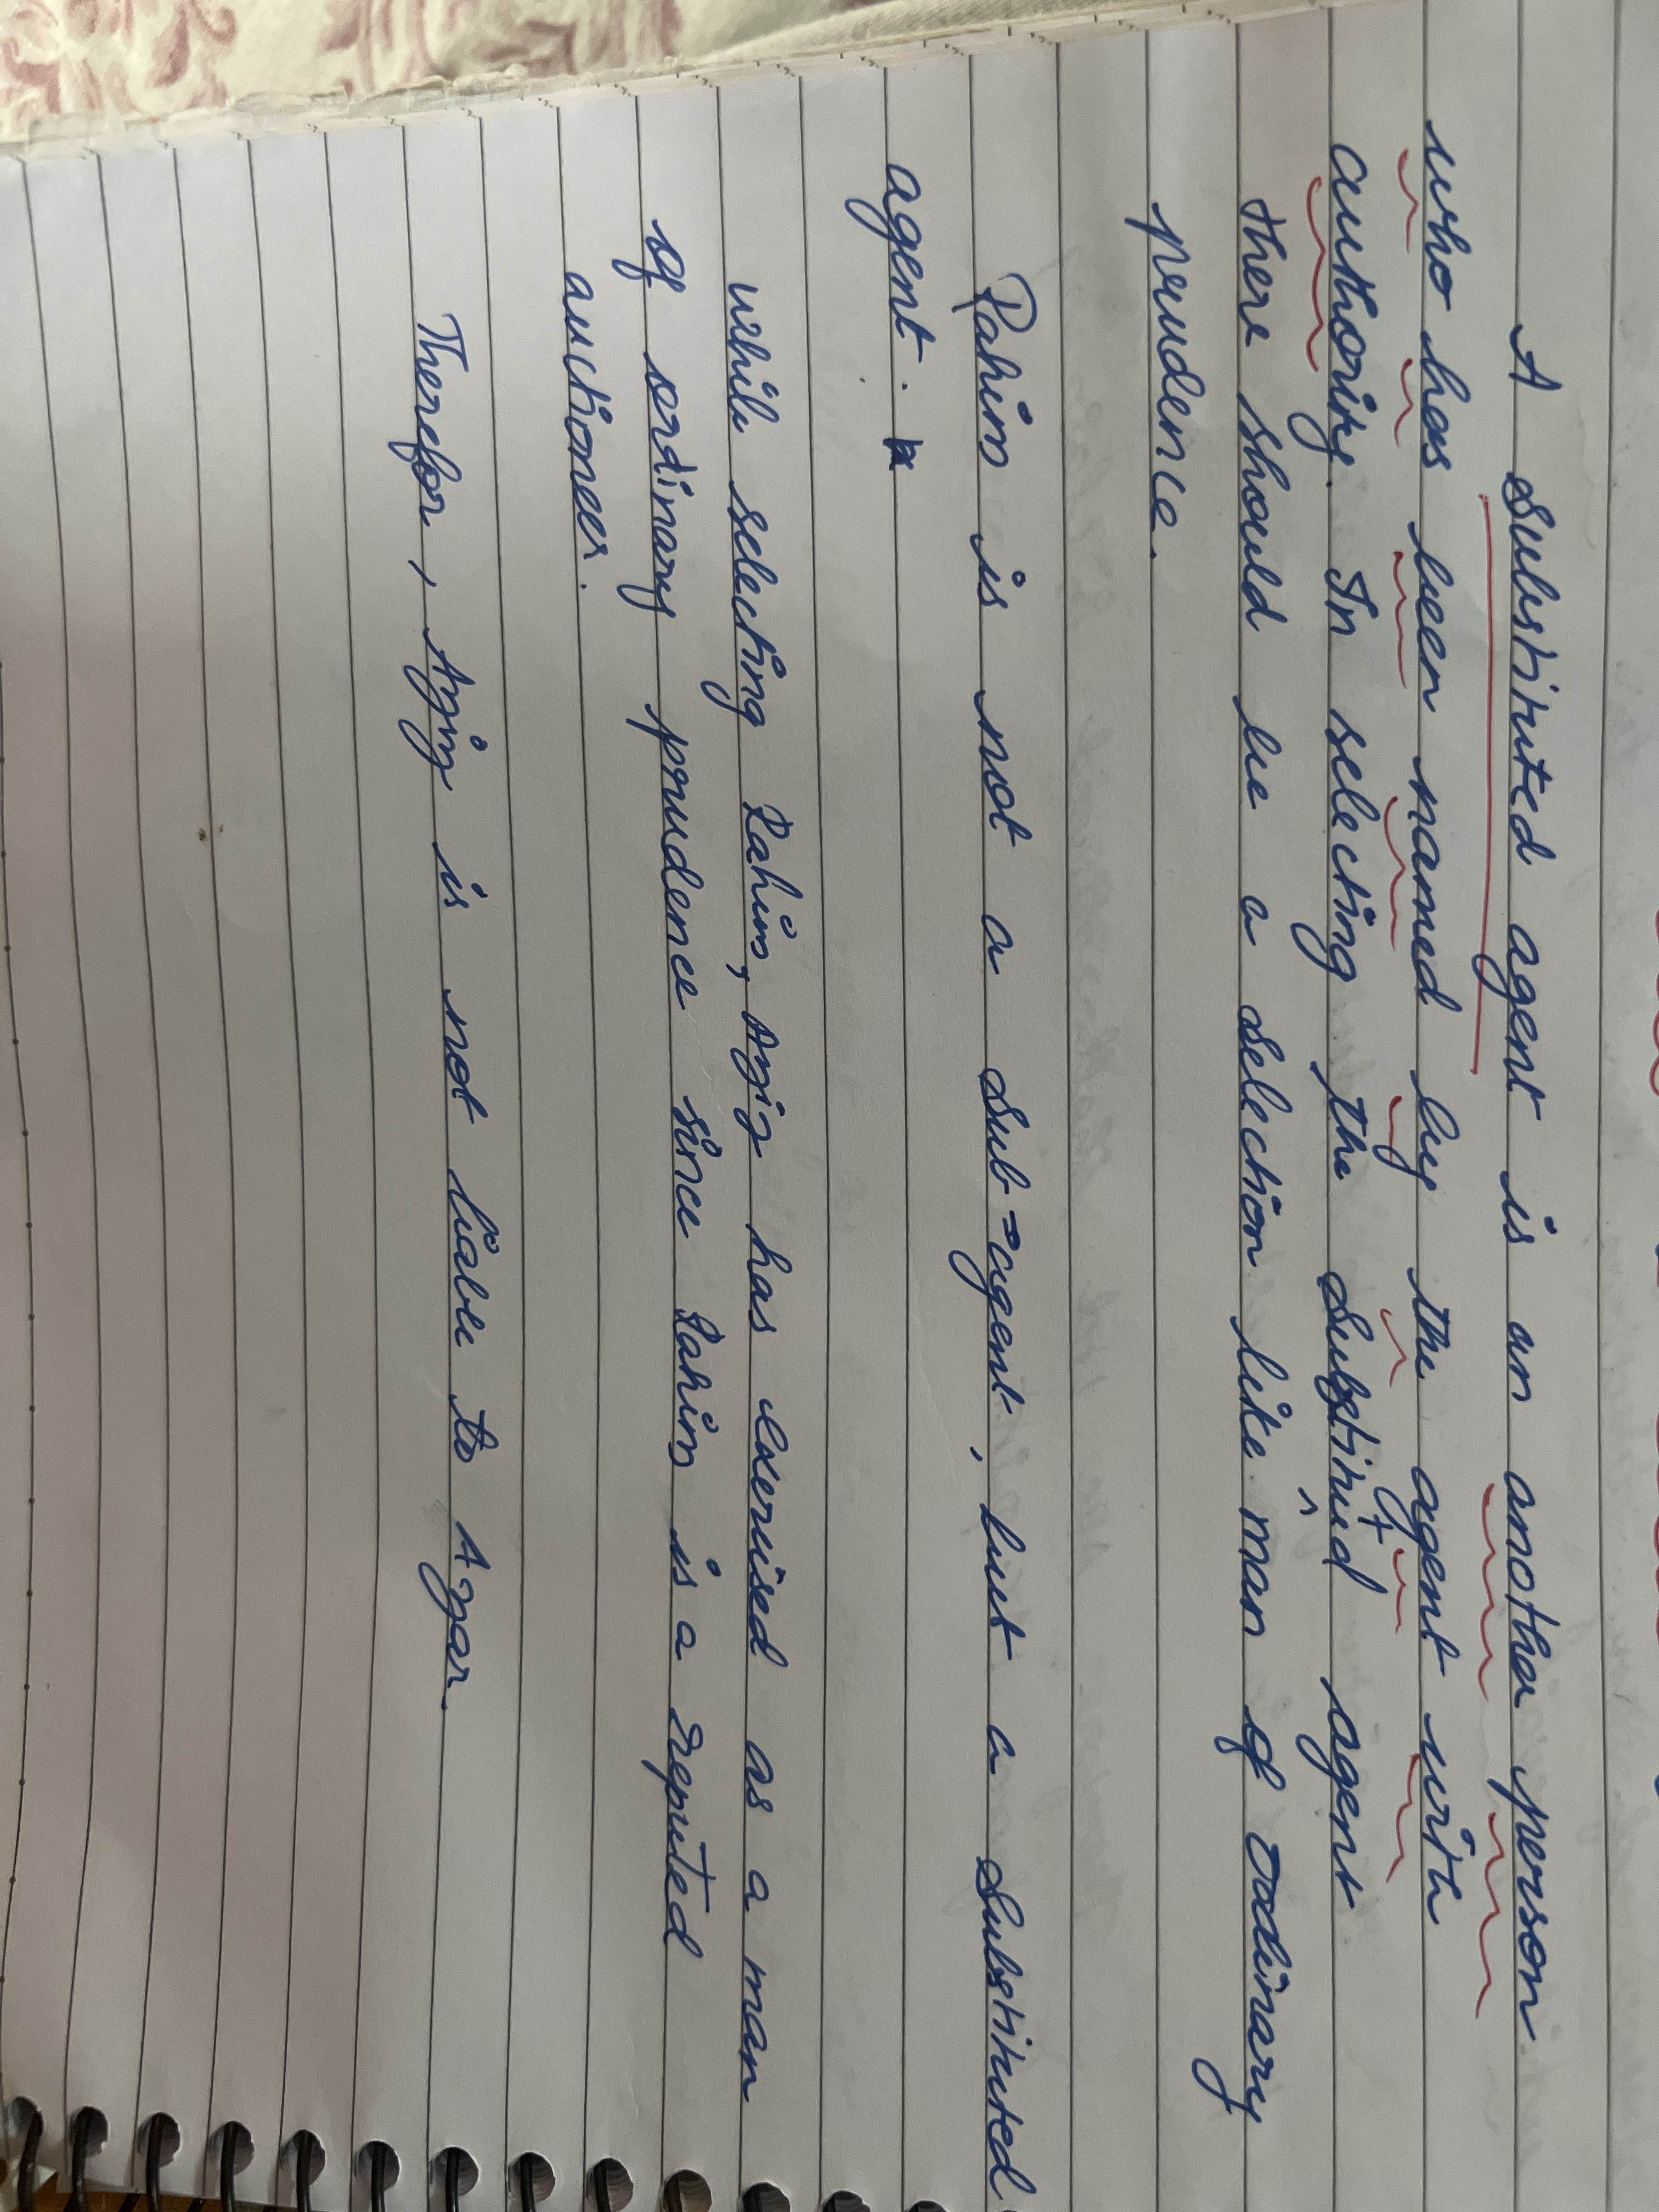 A substituted agent is an another person
who has been named by the agent with
authoriy. In selecting the substitued agent
t
^
there should be a selection like man of oodinary
prudence.
Rahim is not a sub-agent, but a substituted
agent.
while selecting Rahim, Aziz has exercised as a man
of ordinary prudence since Rahim is a reputed
auctioneer.
Therefor, Aziz is not liable to Azar.